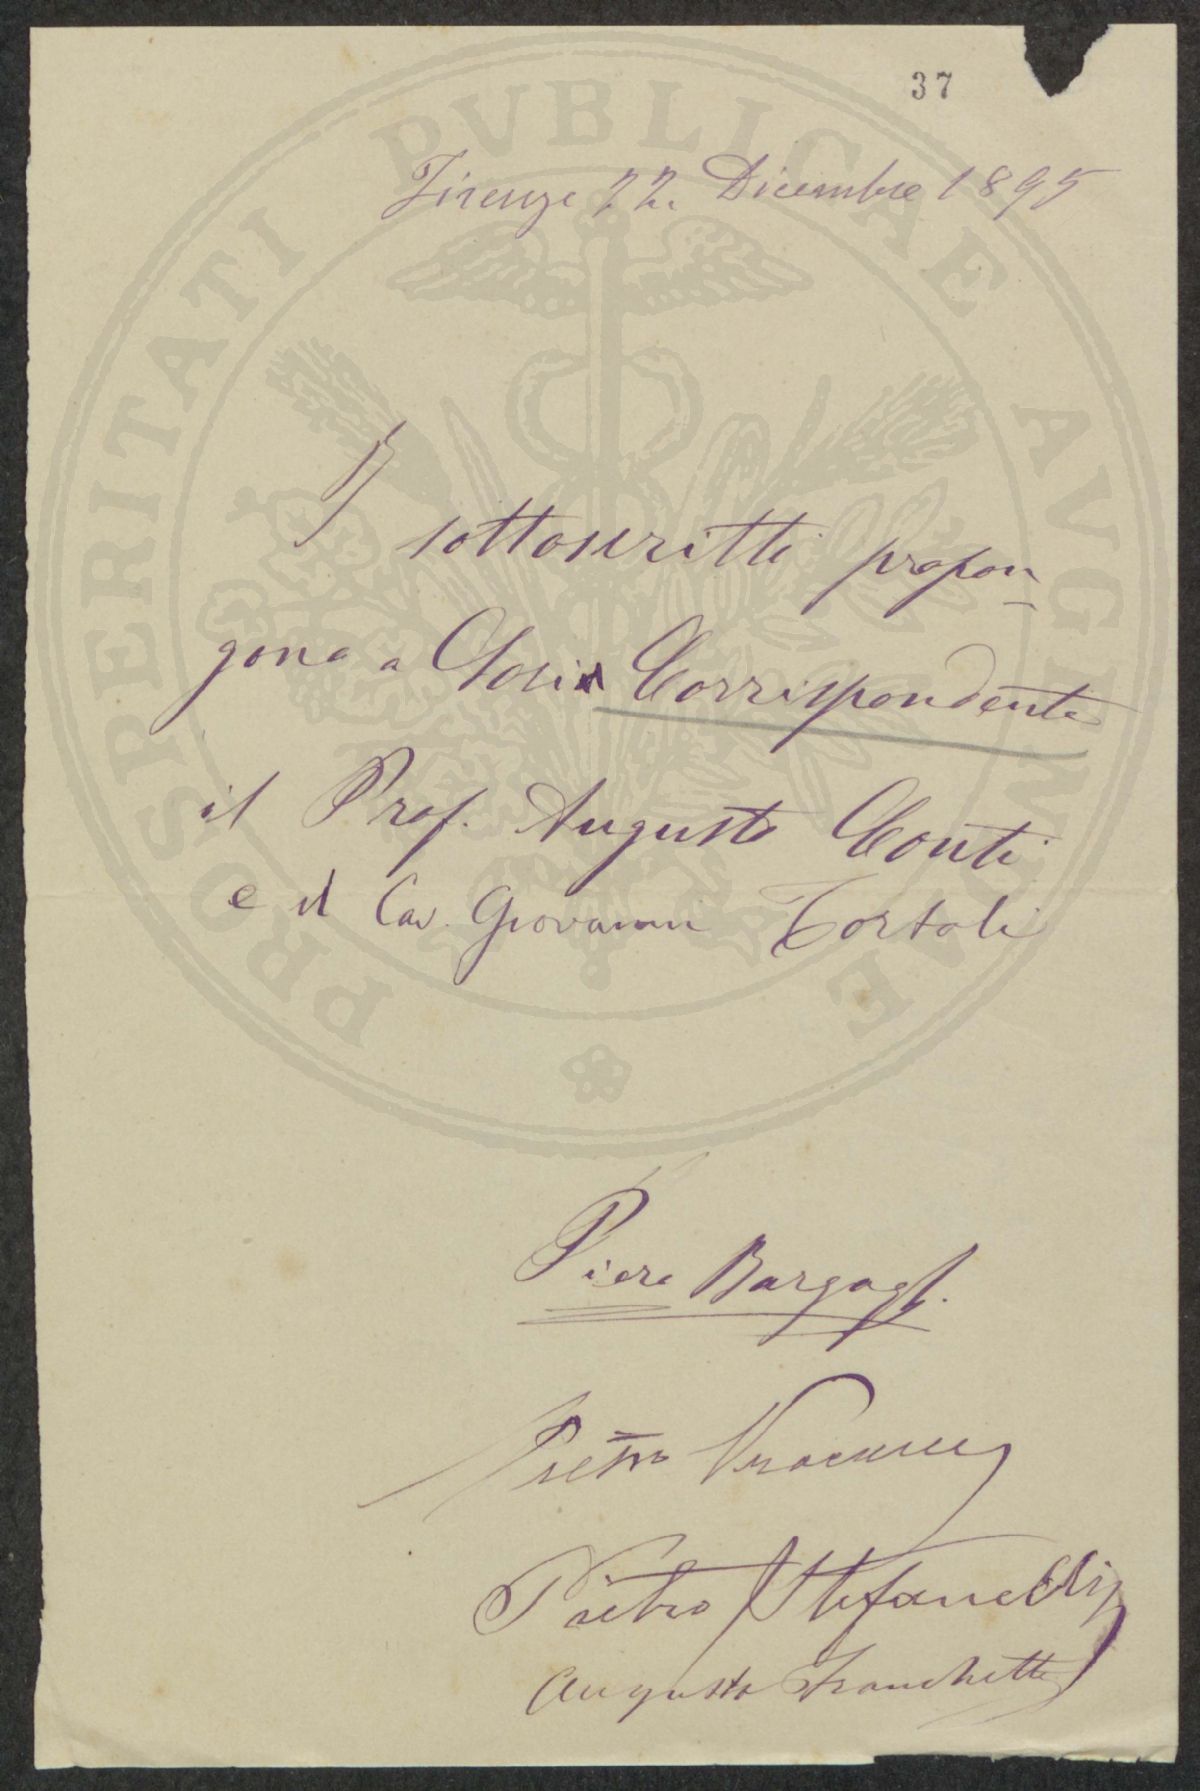 37
Firenze 22. Dicembre 1895
I sottoscritti propon
gono a Socio Corrispondente
il Prof. Augusto Conti
e il Cav. Giovanni Tortoli
Piero Bargagli
Pietro
Pietro Stefanelli
Augusto Franchetti
PROSPERITATI PVBLICAE AVGENDAE